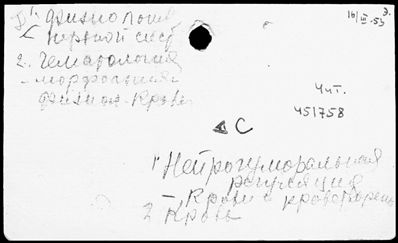 1. Физиология
нервной сист
2. Гематология
– морфология
физиол. Крови
16/III-53
Чит.
451758
С
1 Нейрогуморальная
регуляция
– Крови и кроветворен
2 Кровь